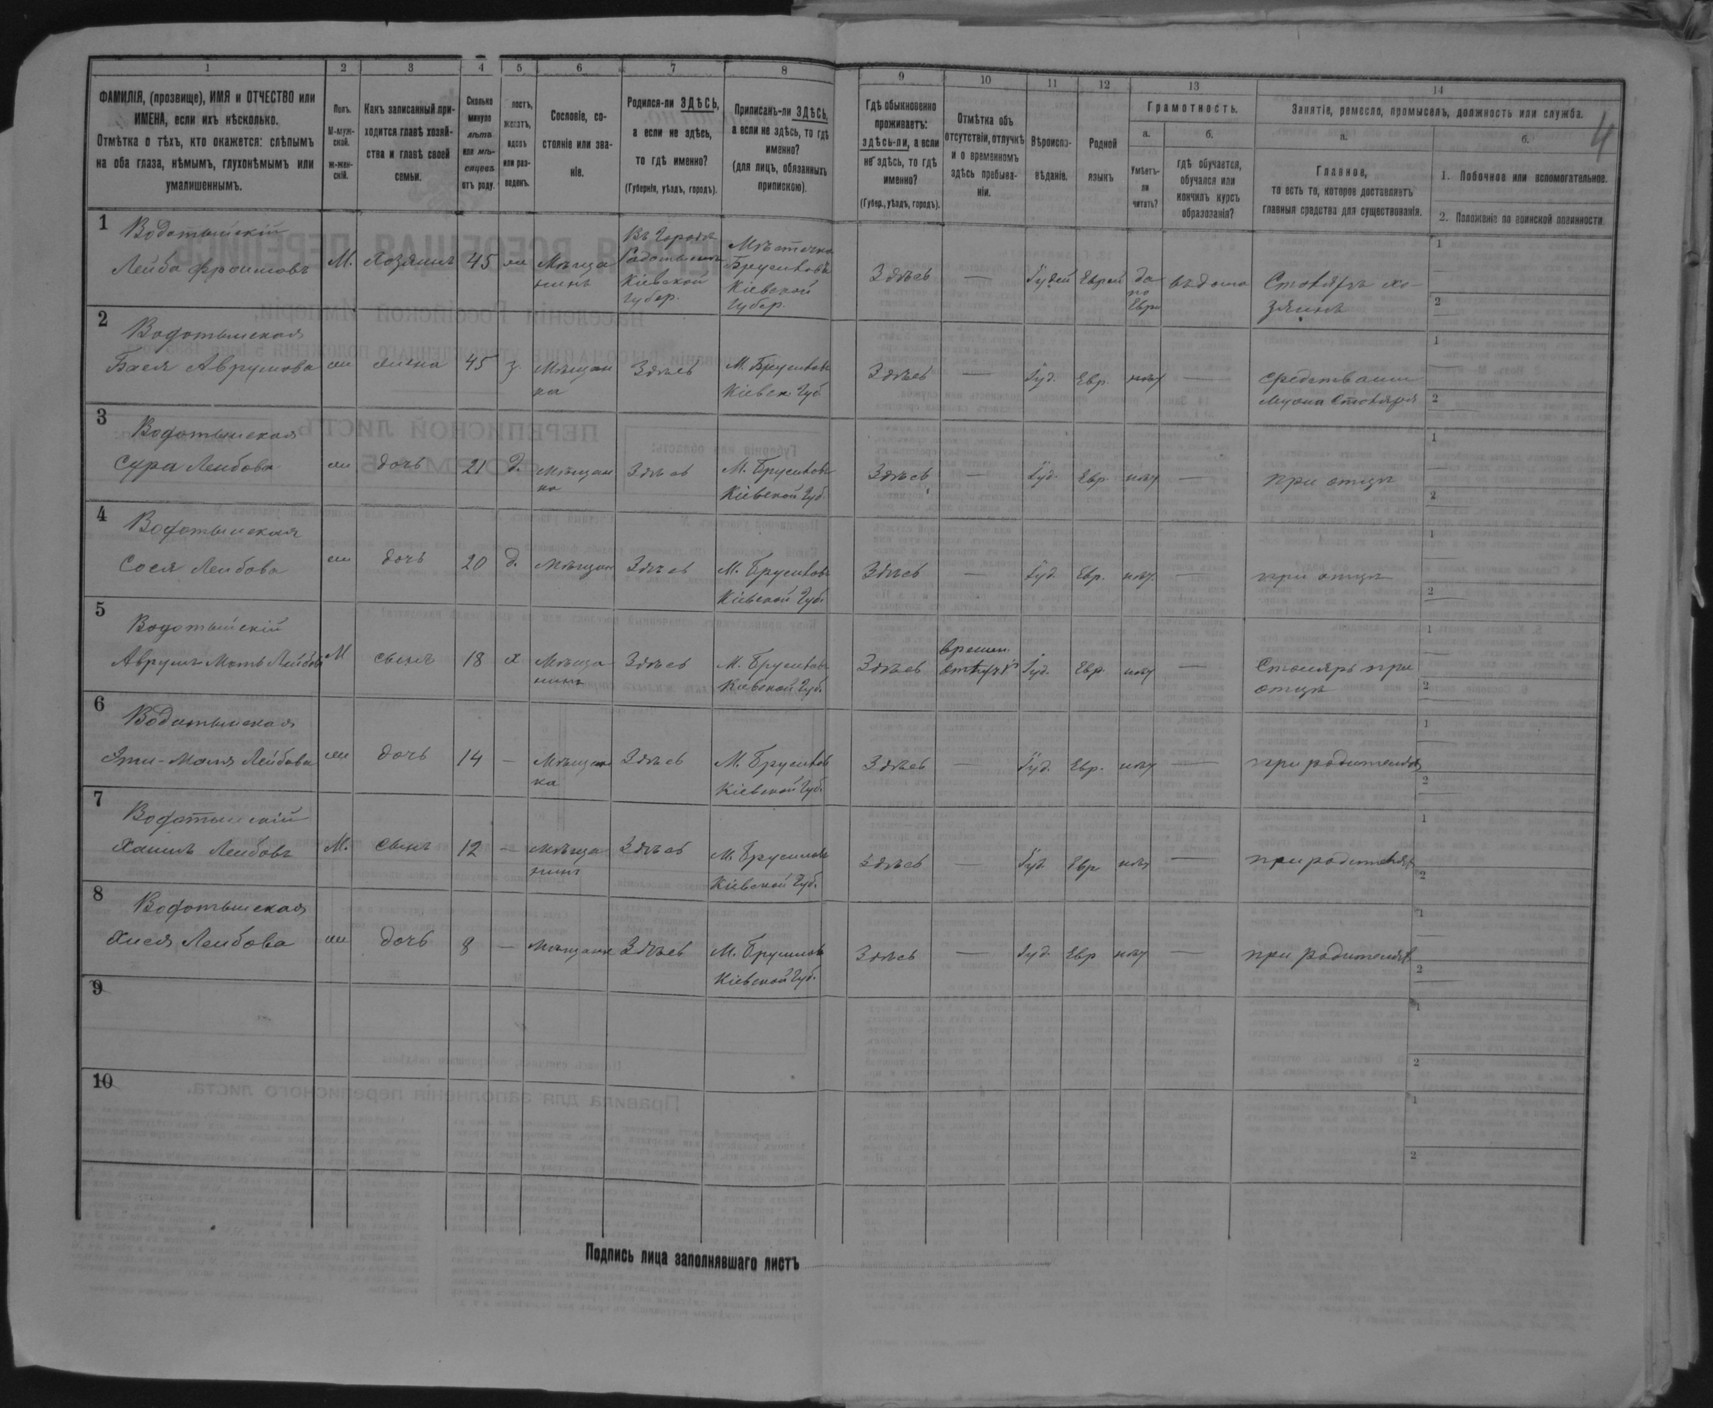 1 2 3 4 5 6 7 8 9 10 11 12 13 14
4
ФАМИЛІЯ, (прозвище), ИМЯ и ОТЧЕСТВО или
ИМЕНА, если ихъ нѣсколько.
Отмѣтка о тѣхъ, кто окажется: слѣпымъ
на оба глаза, нѣмымъ, глухонѣмымъ или
умалишеннымъ.
Полъ.
М-муж-
ской.
ж-жен-
скій.
Какъ записанный при-
ходится главѣ хозяй-
ства и главѣ своей
семьи.
Сколько
минуло
лѣтъ
или мѣ-
сяцевъ
отъ роду.
лостъ,
женатъ,
вдовъ
или раз-
веденъ.
Сословіе, со-
стояніе или зва-
ніе.
Родился-ли ЗДѢСЬ,
а если не здѣсь,
то гдѣ именно?
(Губернія, уѣздъ, городъ).
Приписанъ-ли ЗДѢСЬ,
а если не здѣсь, то гдѣ
именно?
(для лицъ, обязанныхъ
припискою).
Гдѣ обыкновенно
проживаетъ:
здѣсь-ли, а если
не здѣсь, то гдѣ
именно?
(Губер., уѣздъ, городъ).
Отмѣтка объ
отсутствіи, отлучкѣ
и о временномъ
здѣсь пребыва-
ніи.
Вѣроиспо-
вѣданіе.
Родной
языкъ
Грамотность.
а.
Умѣетъ-
ли
читать?
б.
гдѣ обучается,
обучался или
кончилъ курсъ
образованія?
Занятіе, ремесло, промыселъ, должность или служба.
а.
Главное,
то есть то, которое доставляетъ
главныя средства для существованія.
б.
1. Побочное или вспомогательное.
2. Положеніе по воинской повинности
1
Водотыйскій
Лейба Фроимовъ
М. Хозяинъ 45 жн Мѣща
нинъ
Въ городѣ
Кіевской
Губер.
Мѣстечко
Брусиловъ
Кіевской
Губер.
Здѣсь — Іудей Еврей
да
по
Евр
вѣ дома
Столяръ хо-
зяинъ
1
2
2
Водотыйская
Бася Аврумова
жн жена 45 з. Мѣщан
ка
Здѣсь
М. Брусиловъ
Кіевск Губ
Здѣсь — Іуд. Евр. нѣт —
средствами
мужа столяра
1
2
3
Водотыйская
Сура Лейбова
жн дочь 21 д. Мѣщан
ка
Здѣсь
М. Брусиловъ
Кіевской Губ.
Здѣсь — Іуд. Евр. нѣт —
при отцѣ
1
2
4
Водотыйская
Сося Лейбова
жн дочь 20 д. Мѣщан
Здѣсь
М. Брусиловъ
Кіевской Губ.
Здѣсь — Іуд. Евр. нѣт. —
при отцѣ
1
2
5
Водотыйскій
Аврумъ Мотъ Лейбов
М сынъ 18 х Мѣща
нинъ
Здѣсь
М. Брусиловъ
Кіевской Губ.
Здѣсь
времен.
Іуд. Евр. нѣт —
Столяръ при
отцѣ
1
2
6
Водотыйская
Лейбова
жн дочь 14 — Мѣщан
ка
Здѣсь
М. Брусиловъ
Кіевской Губ.
Здѣсь — Іуд. Евр. нѣт —
при родителях
1
2
7
Водотыйскій
Хаимъ Лейбовъ
М. сынъ 12 — Мѣща
нинъ
Здѣсь
М. Брусиловъ
Кіевской Губ.
Здѣсь — Іуд. Евр нѣт —
при родителях
1
2
8
Водотыйская
Хися Лейбова
жн дочь 8 — Мѣщанк
Здѣсь
М. Брусиловъ
Кіевской Губ.
Здѣсь — Іуд. Евр нѣт —
при родителях
1
2
9
1
2
10
1
2
Подпись лица заполнявшаго листъ